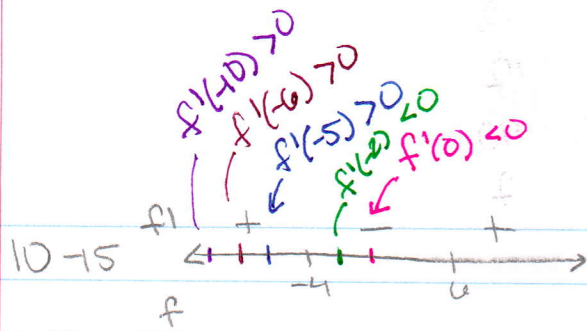 f'(-10) > 0
f'(-6) > 0
f'(-5) > 0
f'(-2) < 0
f'(0) < 0
f' + − +
10-15
-4 6
f